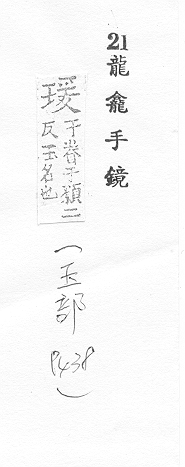 21 龍龕手鏡
瑗
于眷于願二
反玉名也
(玉部 P438)